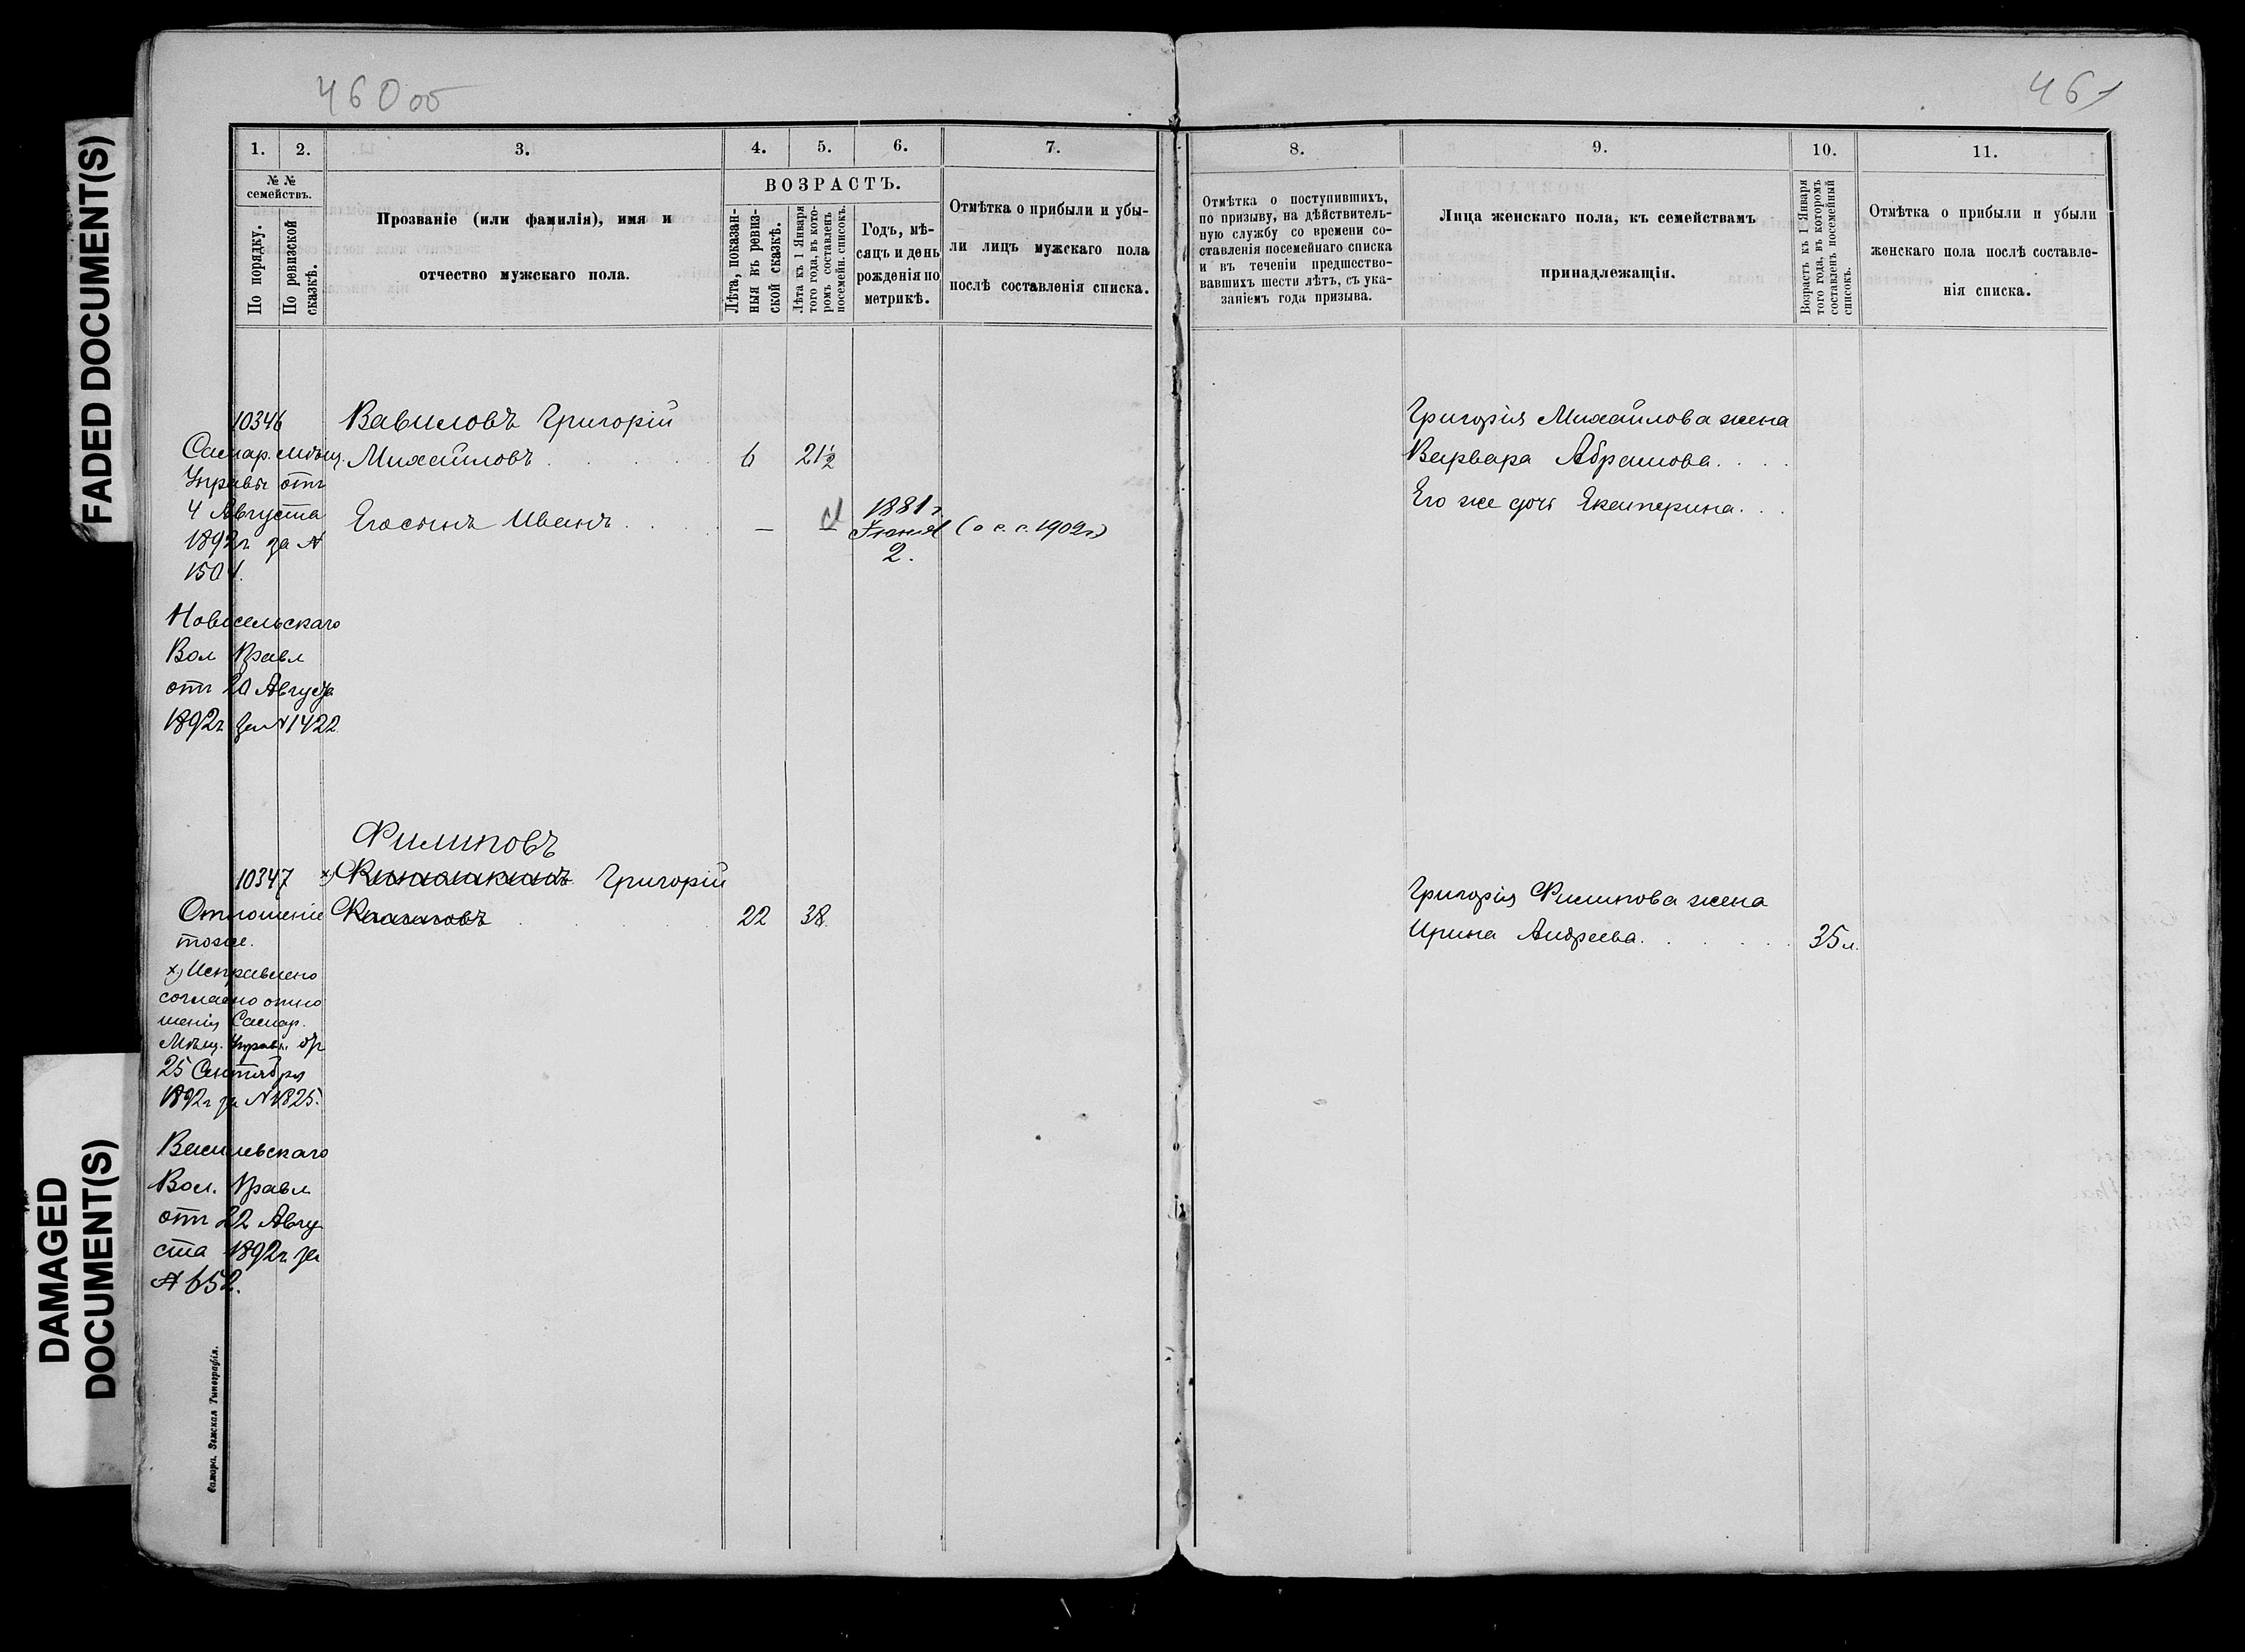 460 об
461
FADED DOCUMENT(S)
DAMAGED
DOCUMENT(S)
1. 2. 3. 4. 5. 6. 7.
№ №
семействъ.
По порядку.
По ревизской
сказкѣ.
Прозваніе (или фамилія), имя и
отчество мужскаго пола.
ВОЗРАСТЪ.
Лѣта, показан-
ныя въ ревиз-
ской сказкѣ.
Лѣта къ 1 Января
того года, въ кото-
ромъ составленъ
посемейн. списокъ.
Годъ, мѣ-
сяцъ и день
рожденія по
метрикѣ.
Отмѣтка о прибыли и убы-
ли лицъ мужскаго пола
послѣ составленія списка.
10346 Вавиловъ Григорій
Самар. Мѣщ. Михайловъ 6 21½
Управы отъ
4 Августа Его сынъ Иванъ — 1881 г.
1892 г. за № Іюня (о с. с. 1902 г)
2.
1504.
Новосельскаго
Вол Правл
отъ 20 Августа
1892 г за № 1422
Филиповъ
10347 х) Григорій
Отношеніе 22 38
тоже.
х) Исправлено
согласно отно
шенія Самар.
Мѣщ. Управы отъ
25 Сентября
1892 г за № 1825.
Васильевскаго
Вол. Правл
отъ 22 Авгу
ста 1892 г за
№ 652.
Самара. Земская Типографія.
8. 9. 10. 11.
Отмѣтка о поступившихъ,
по призыву, на дѣйствитель-
ную службу со времени со-
ставленія посемейнаго списка
и въ теченіи предшество-
вавшихъ шести лѣтъ, съ ука-
заніемъ года призыва.
Лица женскаго пола, къ семействамъ
принадлежащія.
Возрастъ къ 1 Января
того года, въ которомъ
составленъ посемейный
списокъ.
Отмѣтка о прибыли и убыли
женскаго пола послѣ составле-
нія списка.
Григорія Михайлова жена
Варвара Абрамова
Его же дочь Екатерина
Григорія Филипова жена
Ирина Андреева 35 л.